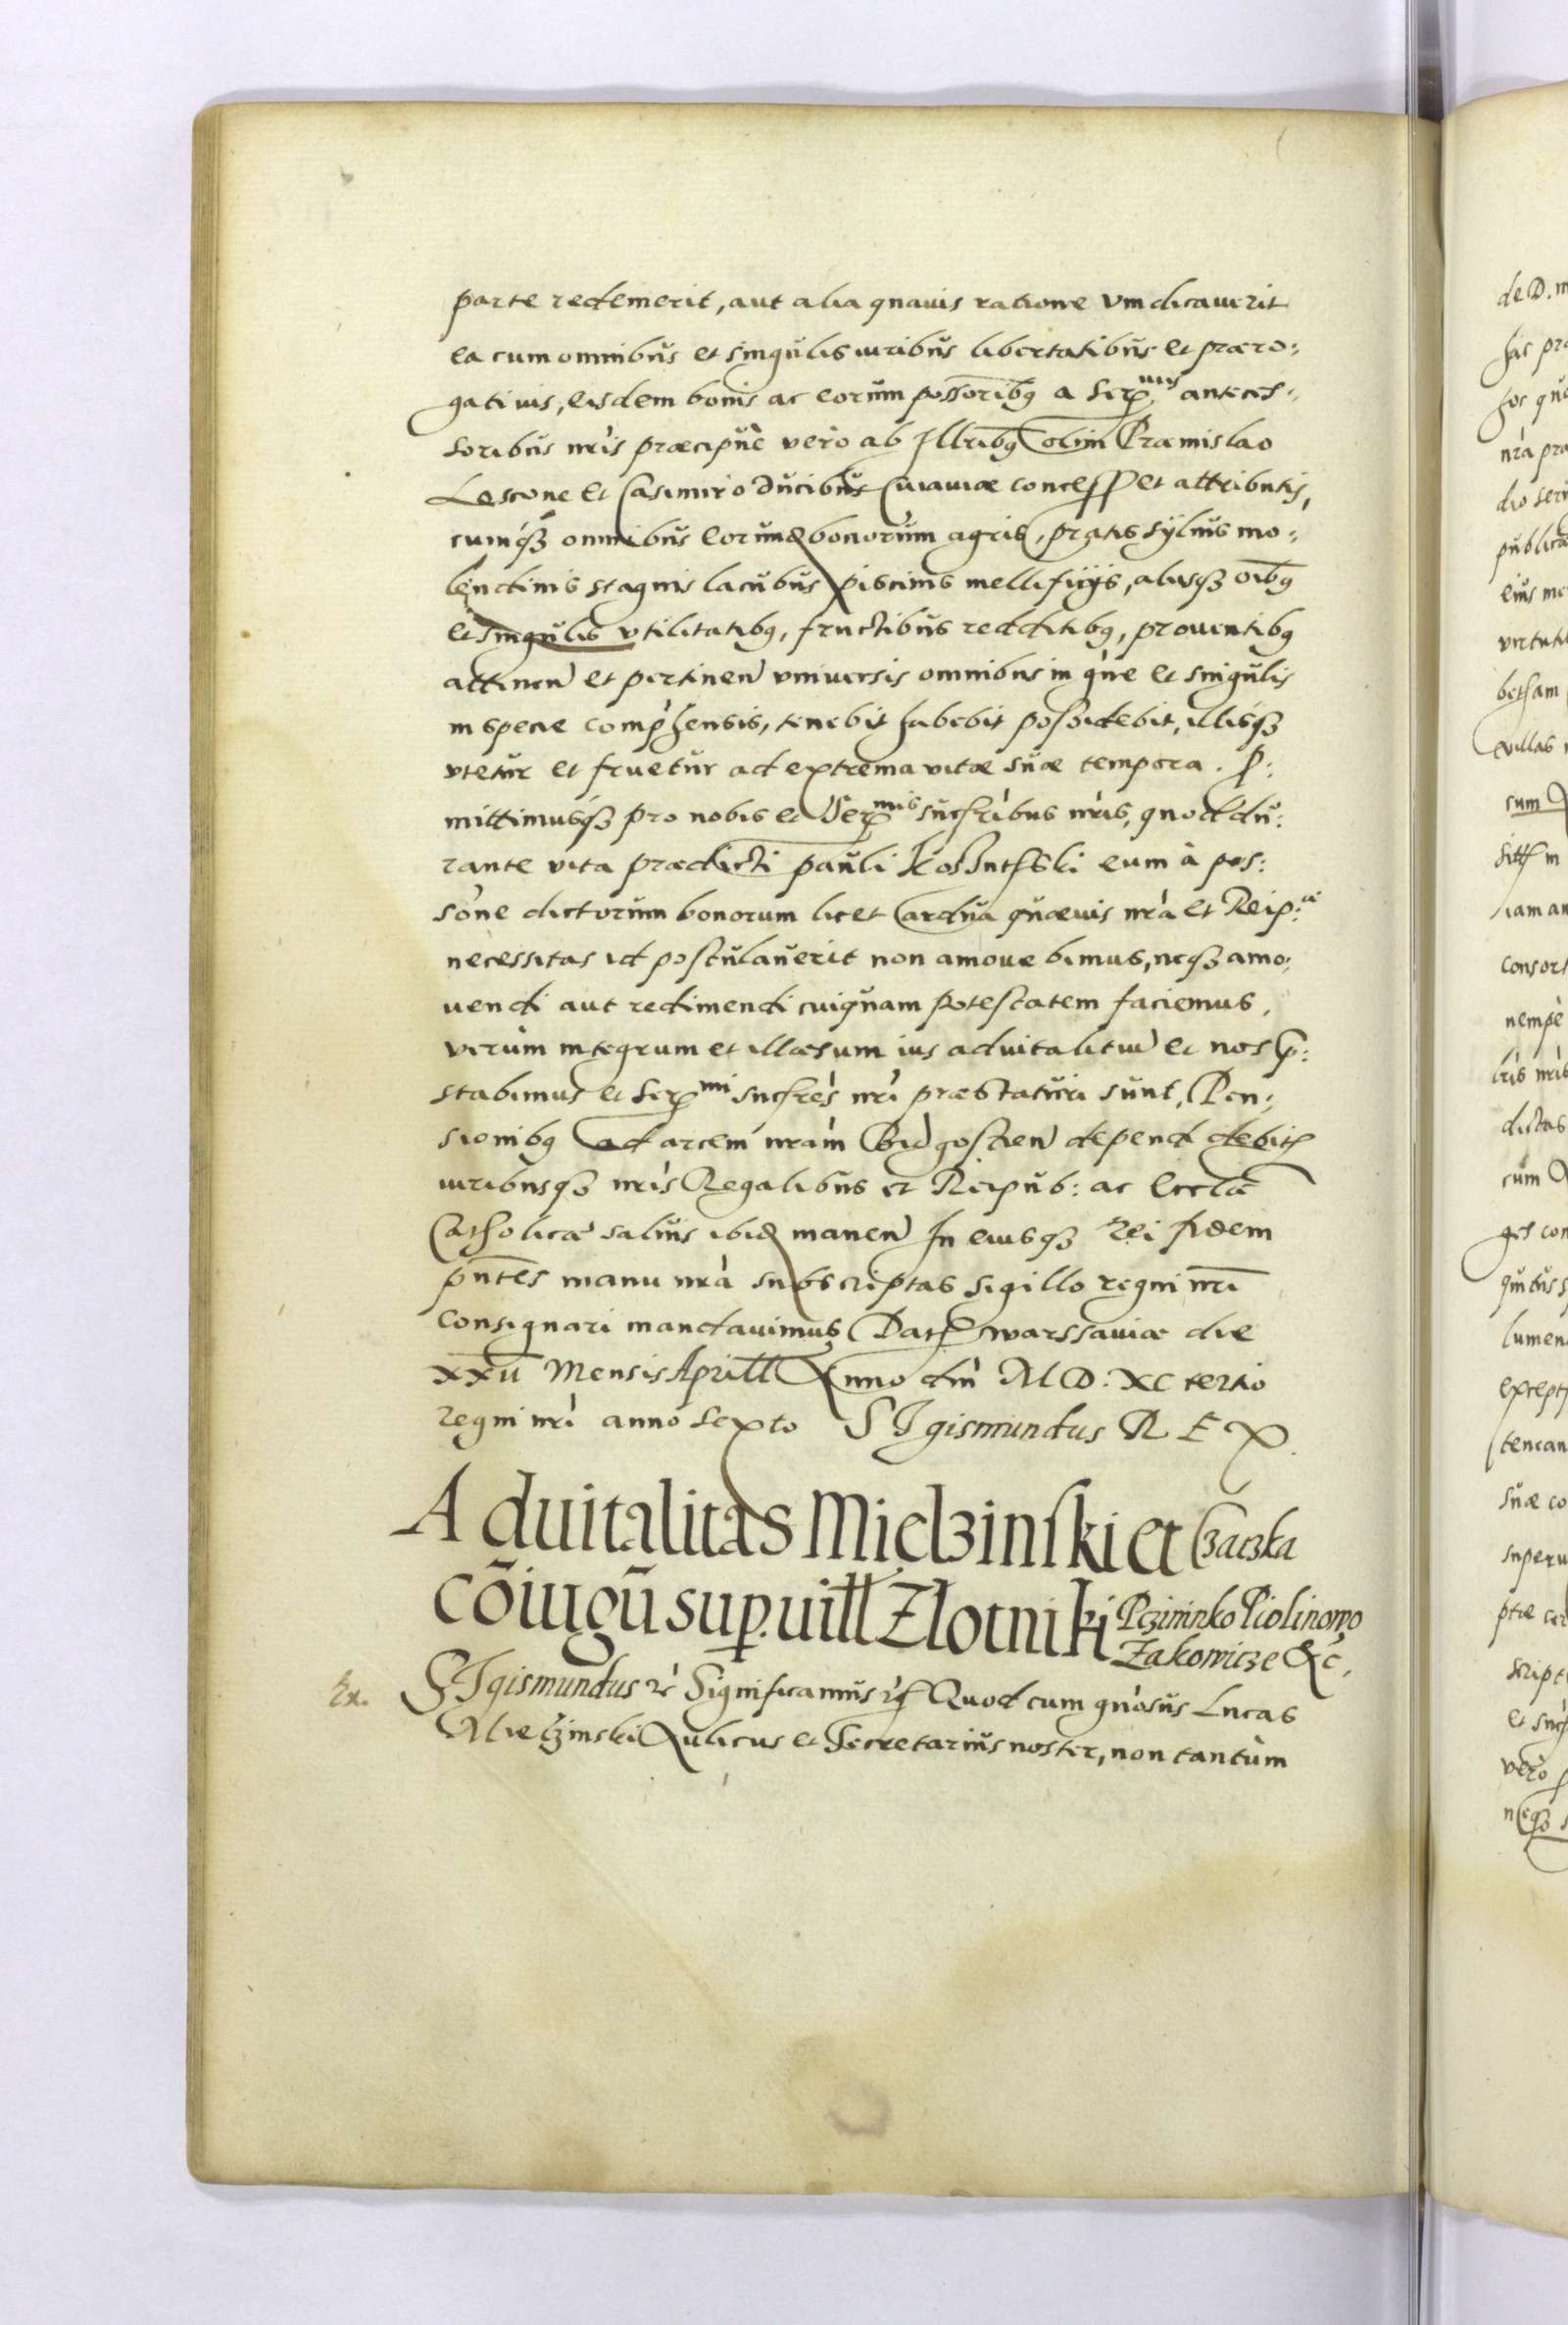 parte redemerit, aut alia quavis ratione vindicaverit
ea cum omnibus et singulis iuribus libertatibus et præro:
gativis, eisdem bonis ac eorum possoribq a Serp. mis anteces:
soribus nris præcipuè verò ab Illribq olim Præmislao
Lescone et Casimiro Ducibus Cuiaviæ concess et attributis,
cumqȝ omnibus eorund bonorum agris, pratis sylvis mo:
lendinis stagnis lacubus piscinis mellificijs, alijsqȝ oibq
et singulis vtilitatibq, fructibus redditibq, proventibq
attinen et pertinen vniversis omnibus in gñre et singulis
in specie comphensis, tenebit habebit possidebit, illisqȝ
vtetur et fruetur ad extrema vitæ suæ tempora. P:
mittimusqȝ pro nobis et Serp mis sucfribus nris, quod du:
rante vita prædicti pauli Kos eum à pos:
sone dictorum bonorum licet ardua quævis nrà et Reip: cæ
necessitas id postulaverit non amovebimus, neqȝ amo:
vendi aut redimendi cuiquam potestatem faciemus,
verùm integrum et illæsum ius advitalitiu et nos p:
stabimus et Serp mi sucfres nri præstaturi sunt, Pen:
sionibq ad arcem nram Bidgostien depend debit
iuribusqȝ nris Regalibus et Reipub: ac Ecclæ
Catholicæ salvis ibid manen In eiusqȝ rei fidem
pntes manu nrà subscriptas sigillo regni nri
consignari mandavimus Dat Warssaviæ die
XXII Mensis Aprill Anno dni M D: XC tertio
regni nri anno sexto SIgismundus REX.
Advitalitas Mielzinski et Czaczka
cõiugũ sup. vill Zlotniki Pczininko Piolinowo
Zakowicze &c,
Ex. SIgismundus rc Significamus rc Quod cum gnosus Lucas
Mielzinski Aulicus et Secretarius noster, non tantùm